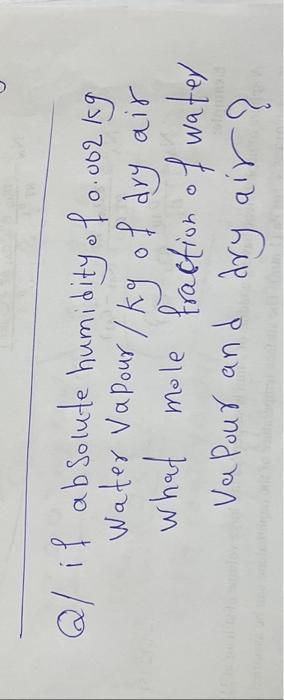 Q/ if absolute humidity of 0.002 kg
water vapour/kg of dry air
what mole fraction of water
vapour and dry air?